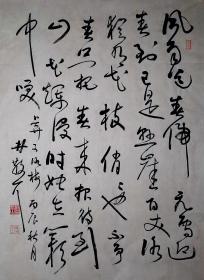 風雨送春歸飛雪迎
春到已是懸崖百丈冰
猶有花枝俏俏也不爭
春只把春來報待到
山花爛漫時她在叢
中笑
卜算子詠梅 丙辰秋月